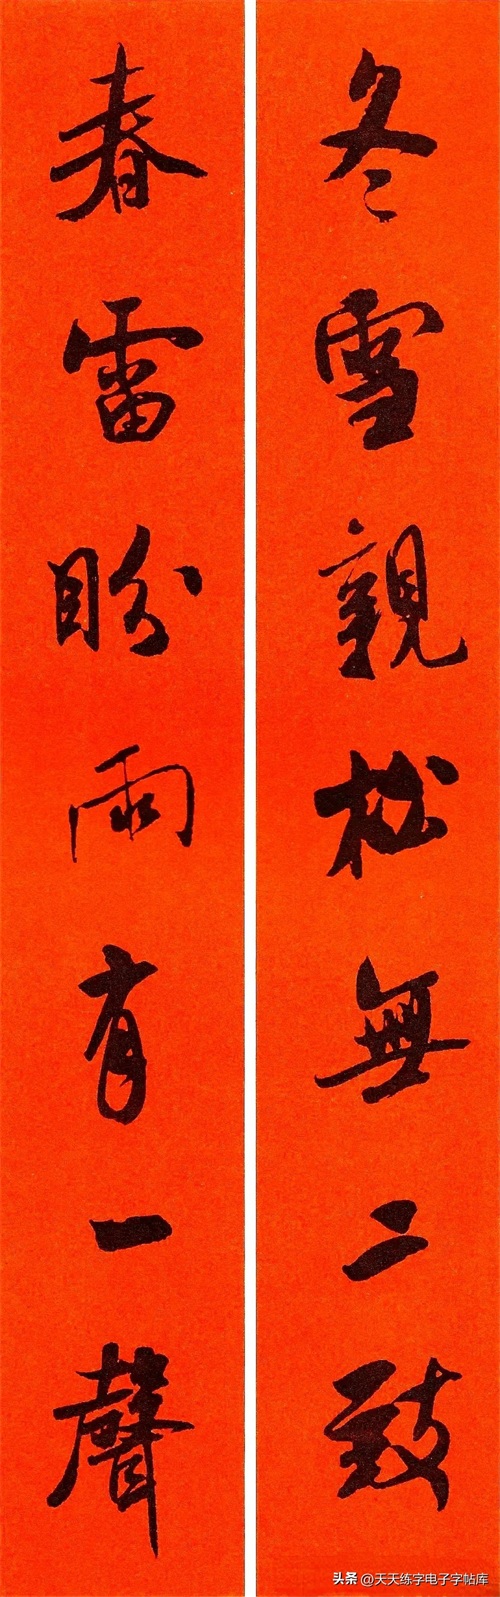 冬雪親松無二致
春雷盼雨有一聲
头条 @天天练字电子字帖库